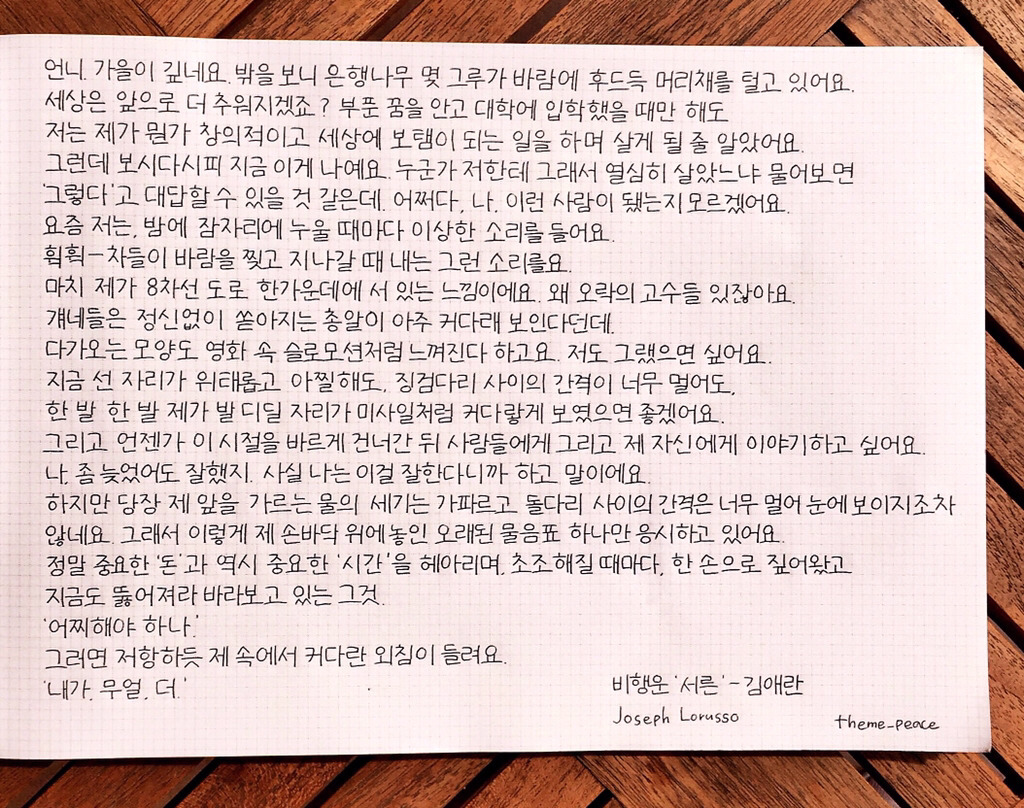 언니. 가을이 깊네요. 밖을 보니 은행나무 몇 그루가 바람에 후드득 머리채를 털고 있어요.
세상은 앞으로 더 추워지겠죠? 부푼 꿈을 안고 대학에 입학했을 때만 해도
저는 제가 뭔가 창의적이고 세상에 보탬이 되는 일을 하며 살게 될 줄 알았어요.
그런데 보시다시피 지금 이게 나예요. 누군가 저한테 그래서 열심히 살았느냐 물어보면
'그렇다'고 대답할 수 있을 것 같은데. 어쩌다, 나, 이런 사람이 됐는지 모르겠어요.
요즘 저는, 밤에 잠자리에 누울 때마다 이상한 소리를 들어요.
휙휙-차들이 바람을 찢고 지나갈 때 내는 그런 소리를요.
마치 제가 8차선 도로 한가운데에 서 있는 느낌이에요. 왜 오락의 고수들 있잖아요.
걔네들은 정신없이 쏟아지는 총알이 아주 커다래 보인다던데.
다가오는 모양도 영화 속 슬로모션처럼 느껴진다 하고요. 저도 그랬으면 싶어요.
지금 선 자리가 위태롭고 아찔해도, 징검다리 사이의 간격이 너무 멀어도,
한 발 한 발 제가 발 디딜 자리가 미사일처럼 커다랗게 보였으면 좋겠어요.
그리고 언젠가 이 시절을 바르게 건너간 뒤 사람들에게 그리고 제 자신에게 이야기하고 싶어요.
나, 좀 늦었어도 잘했지. 사실 나는 이걸 잘한다니까 하고 말이에요.
하지만 당장 제 앞을 가르는 물의 세기는 가파르고, 돌다리 사이의 간격은 너무 멀어 눈에 보이지조차
않네요. 그래서 이렇게 제 손바닥 위에 놓인 오래된 물음표 하나만 응시하고 있어요.
정말 중요한 '돈'과 역시 중요한 '시간'을 헤아리며, 초조해질 때마다, 한 손으로 짚어왔고
지금도 뚫어져라 바라보고 있는 그것.
'어찌해야 하나.'
그러면 저항하듯 제 속에서 커다란 외침이 들려요.
'내가, 무얼, 더.'
비행운 '서른' - 김애란
Joseph Lorusso
theme_peace